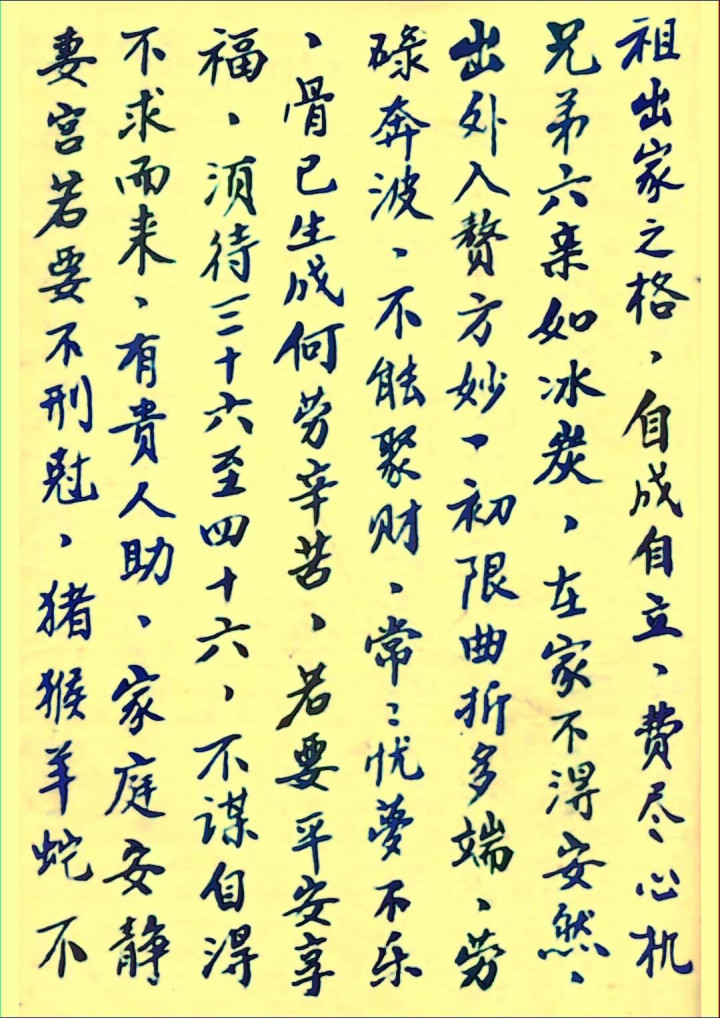 祖出家之格、自成自立、费尽心机
兄弟六亲如冰炭、在家不得安然、
出外入赘方妙、初限曲折多端、劳
碌奔波、不能聚财、常〻忧梦不乐
、骨已生成何劳辛苦、若要平安享
福、须待三十六至四十六、不谋自得
不求而来、有贵人助、家庭安静
妻宫若要不刑尅、猪猴羊蛇不